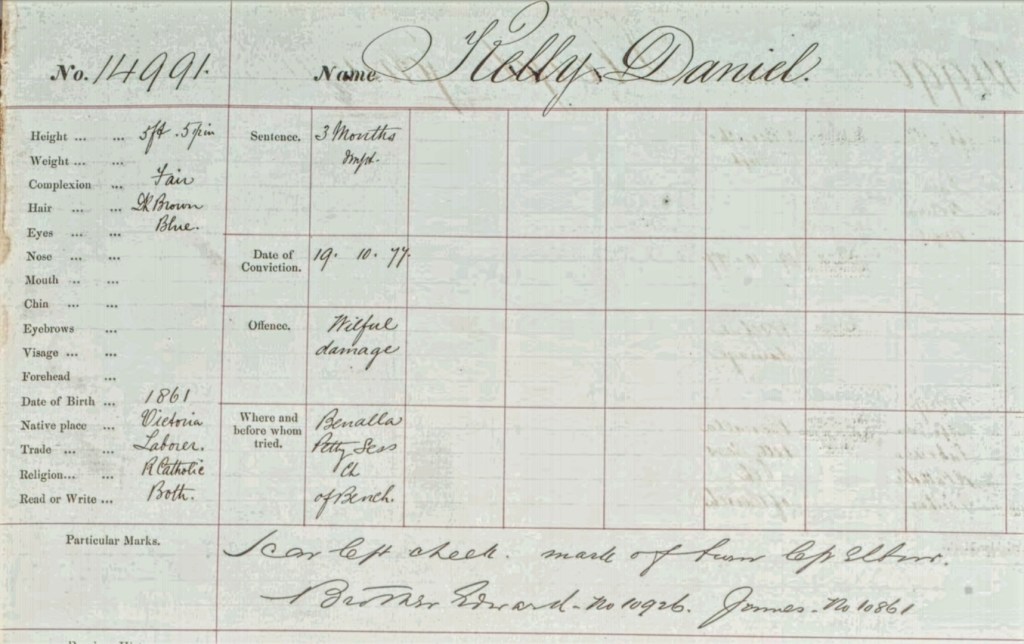 No. 14991. Name Kelly, Daniel.
Height ... ... 5ft . 5½in
Weight ... ...
Complexion ... Fair
Hair ... ... Dk Brown
Eyes ... ... Blue.
Nose ... ...
Mouth ... ...
Chin ... ...
Eyebrows ...
Visage ... ...
Forehead ...
Date of Birth ... 1861
Native place ... Victoria
Trade ... ... Laborer.
Religion... ... R Catholic
Read or Write ... Both.
Sentence. 3 Months
Impt.
Date of
Conviction. 19. 10. 77.
Offence. Wilful
damage
Where and
before whom
tried.
Benalla
Petty Sess
Ch
of Bench.
Particular Marks.
Scar left cheek. mark of burn left Elbow.
Brother Edward - No 10926. James - No 10861